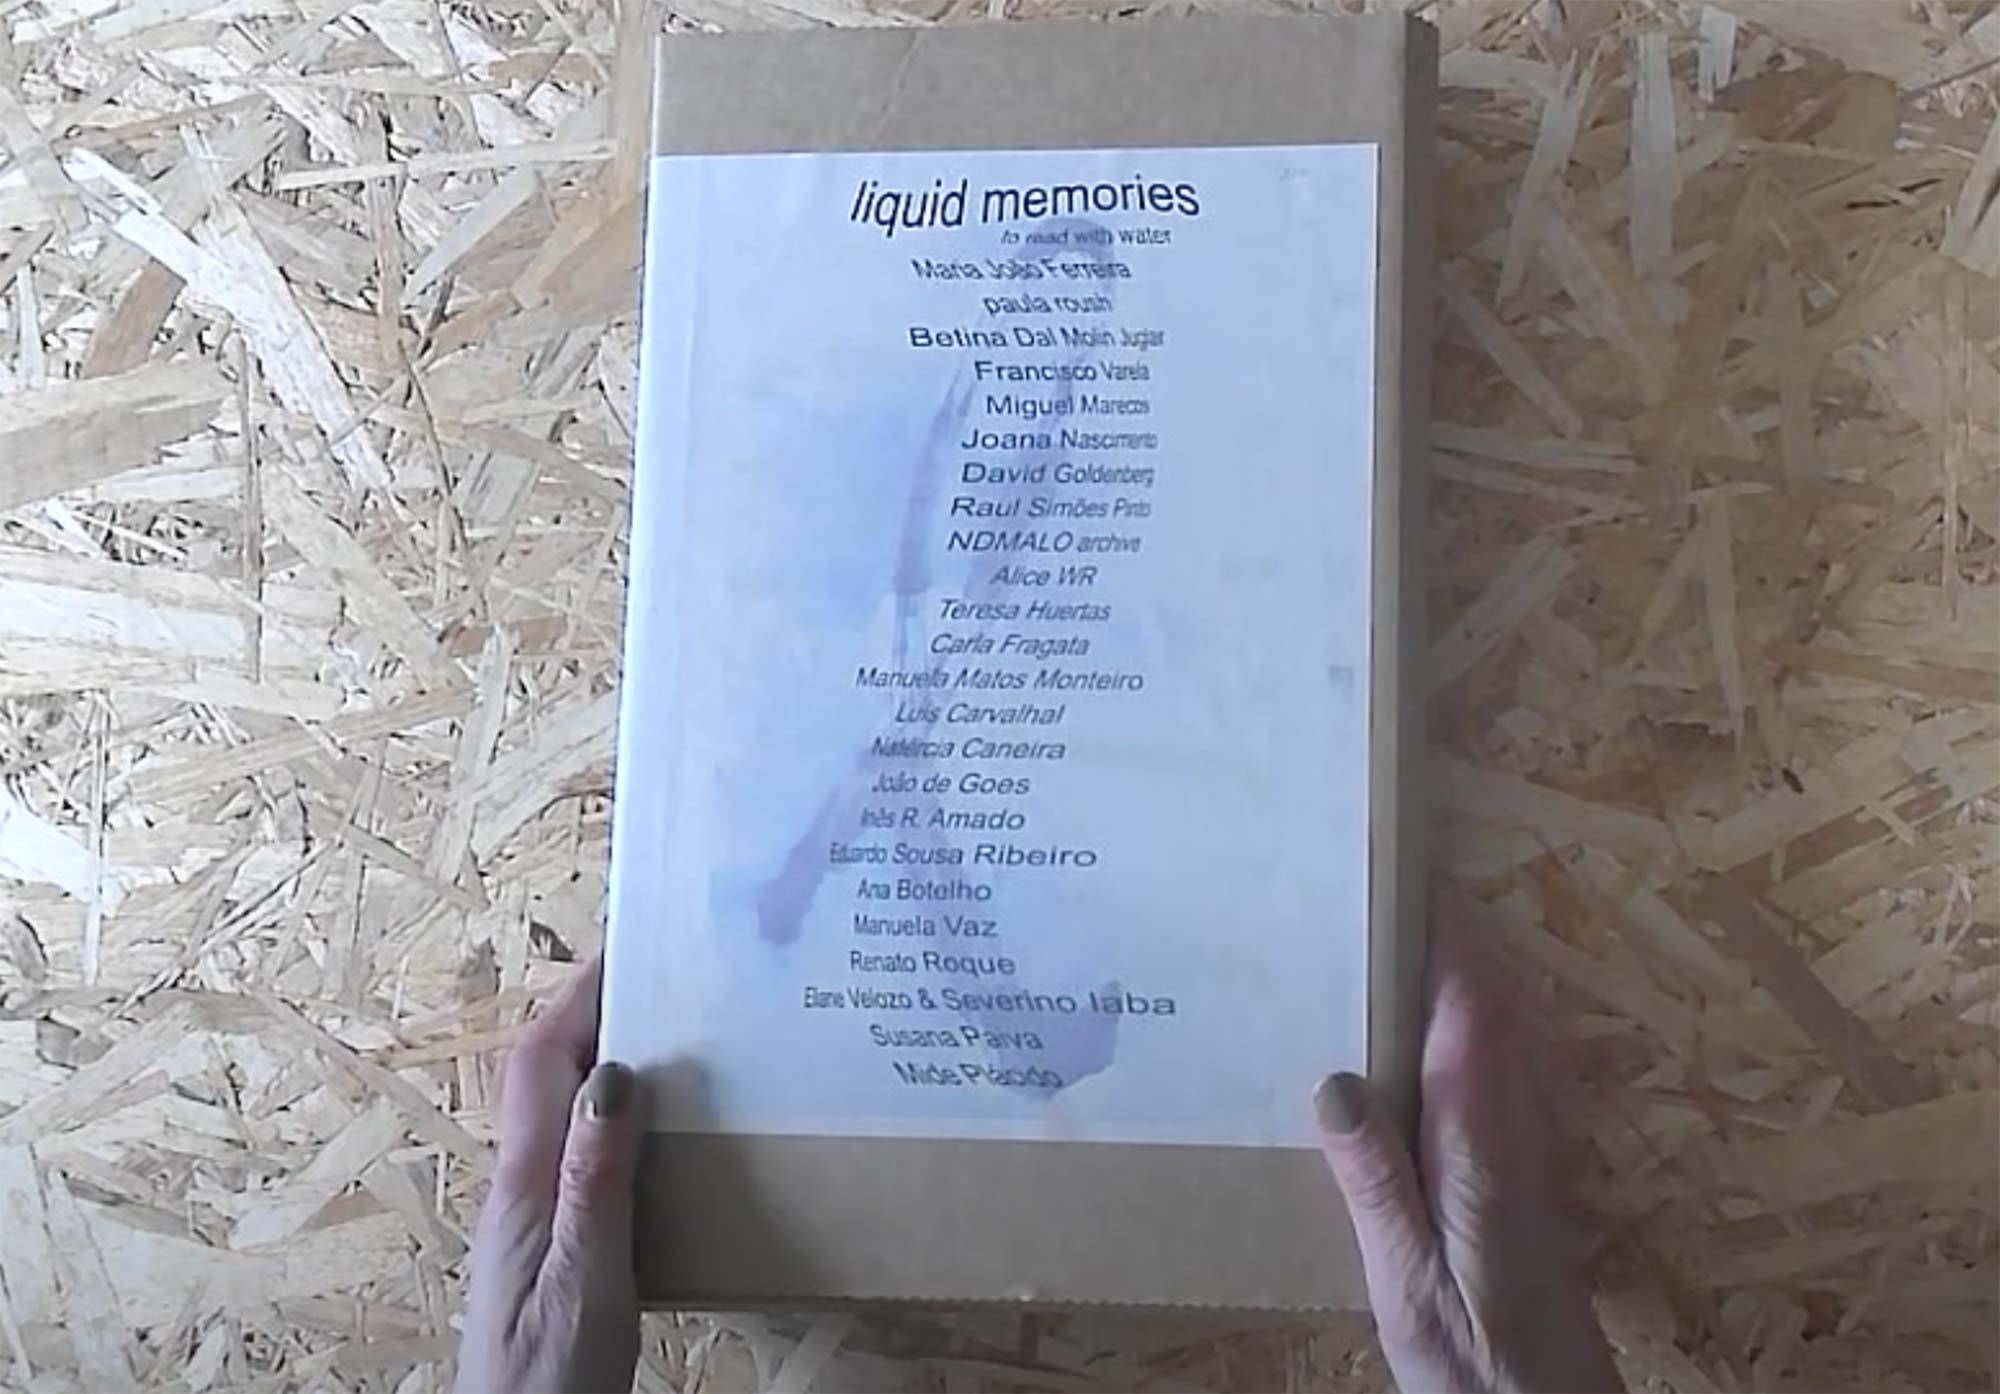 liquid memories
to read with water
Maria João Ferreira
paula roush
Betina Dal Molin Juglar
Francisco Varela
Miguel Marecos
Joana Nascimento
David Goldenberg
Raul Simões Pinto
NDMALO archive
Alice WR
Teresa Huertas
Carla Fragata
Manuela Matos Monteiro
Luís Carvalhal
Natércia Caneira
João de Goes
Inês R. Amado
Eduardo Sousa Ribeiro
Ana Botelho
Manuela Vaz
Renato Roque
Eliane Velozo & Severino Iaba
Susana Paiva
Mide Plácido